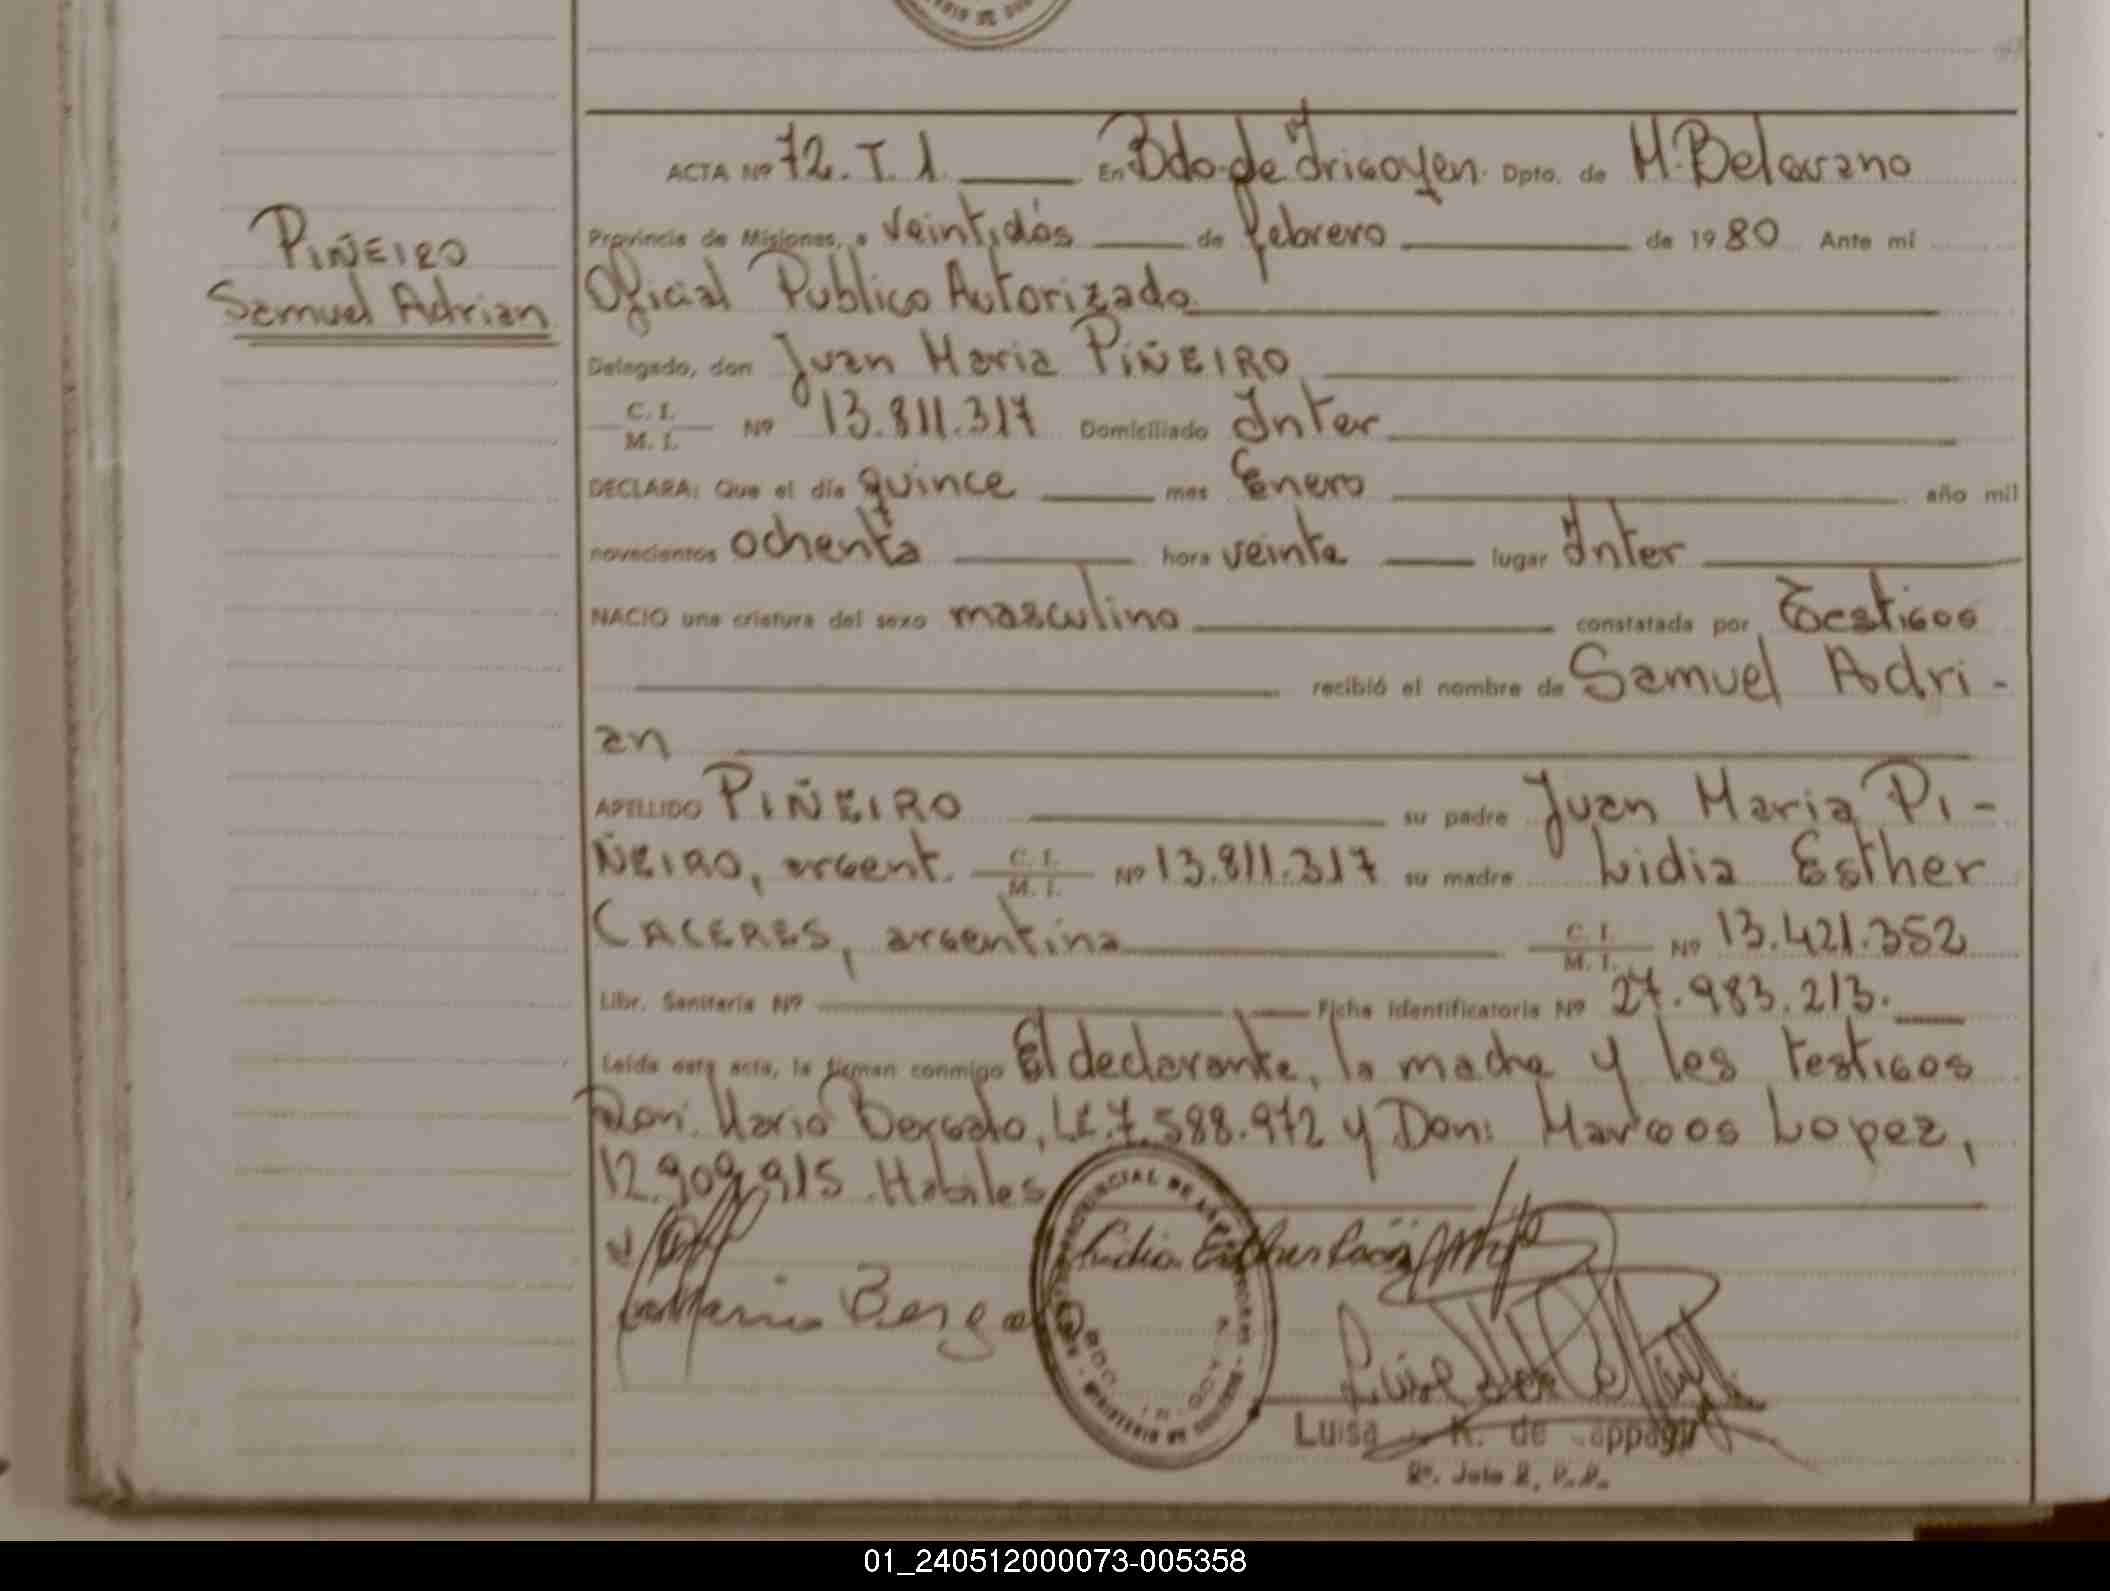 ACTA Nº 72. T. 1. En Bdo. de Irigoyen. Dpto. de M. Belgrano
PIÑEIRO
Samuel Adrian
Provincia de Misiones, a veintidós de febrero de 1980 Ante mí
Oficial Publico Autorizado
Delegado, don Juan Maria PIÑEIRO
C. I.
M. I. Nº 13.811.317 Domiciliado Inter
DECLARA: Que el día quince mes Enero año mil
novecientos ochenta hora veinte lugar Inter
NACIO una criatura del sexo masculino constatada por Testigos
recibió el nombre de Samuel Adri-
an
APELLIDO PIÑEIRO su padre Juan Maria PI-
ÑEIRO, argent. C. I. M. I. Nº 13.811.317 su madre Lidia Esther
CACERES, argentina C. I. M. I. Nº 13.421.352
Libr. Sanitaria Nº Ficha Identificatoria Nº 27.983.213.
Leída esta acta, la firman conmigo El declarante, la madre y los testigos
Don: Mario Bergato, LE.7.588.972 y Don: Marcos Lopez,
12.909.915 Habiles
Lidia Esther
Mario
Luisa K. de
01_240512000073-005358